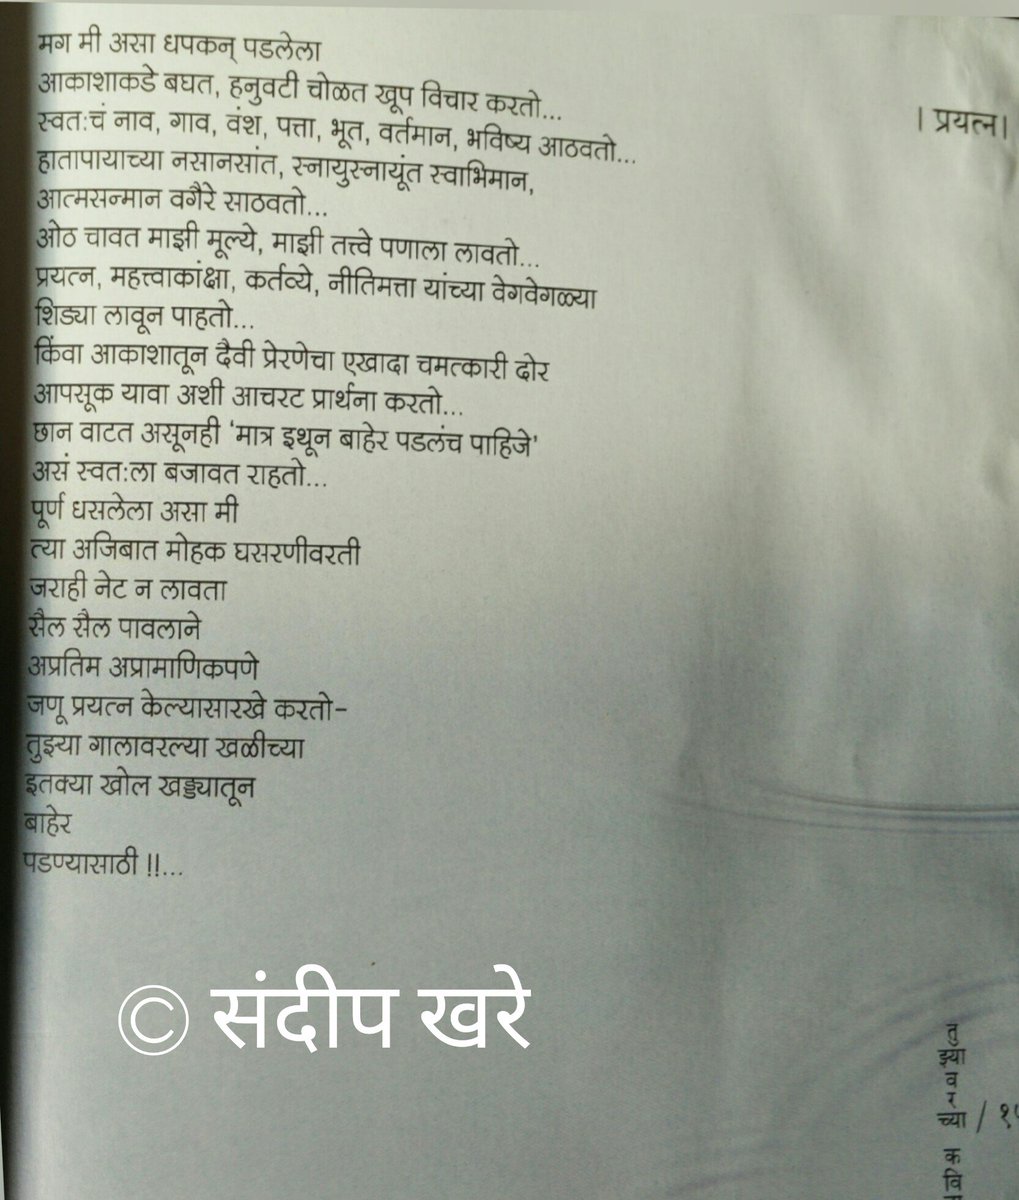 मग मी असा धपकन् पडलेला
आकाशाकडे बघत, हनुवटी चोळत खूप विचार करतो...
स्वतःचं नाव, गाव, वंश, पत्ता, भूत, वर्तमान, भविष्य आठवतो...
हातापायाच्या नसानसांत, स्नायुस्नायूंत स्वाभिमान,
आत्मसन्मान वगैरे साठवतो...
ओठ चावत माझी मूल्ये, माझी तत्त्वे पणाला लावतो...
प्रयत्न, महत्त्वाकांक्षा, कर्तव्ये, नीतिमत्ता यांच्या वेगवेगळ्या
शिड्या लावून पाहतो...
किंवा आकाशातून दैवी प्रेरणेचा एखादा चमत्कारी दोर
आपसूक यावा अशी आचरट प्रार्थना करतो...
छान वाटत असूनही 'मात्र इथून बाहेर पडलंच पाहिजे'
असं स्वतःला बजावत राहतो...
पूर्ण धसलेला असा मी
त्या अजिबात मोहक घसरणीवरती
जराही नेट न लावता
सैल सैल पावलाने
अप्रतिम अप्रामाणिकपणे
जणू प्रयत्न केल्यासारखे करतो-
तुझ्या गालावरल्या खळीच्या
इतक्या खोल खड्ड्यातून
बाहेर
पडण्यासाठी !!...
। प्रयत्न।
© संदीप खरे
तुझ्यावरच्या / १
कवि